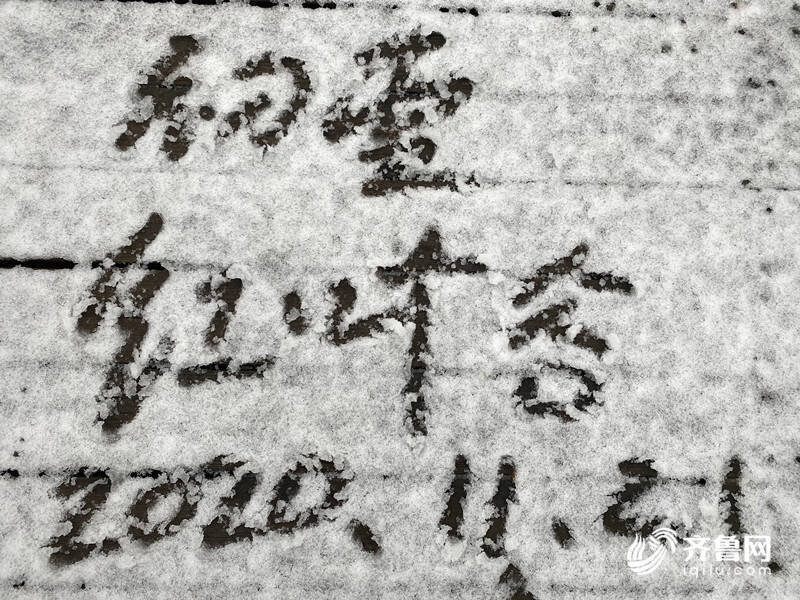 初雪
红叶谷
2020.11.21
齐鲁网
iqilu.com